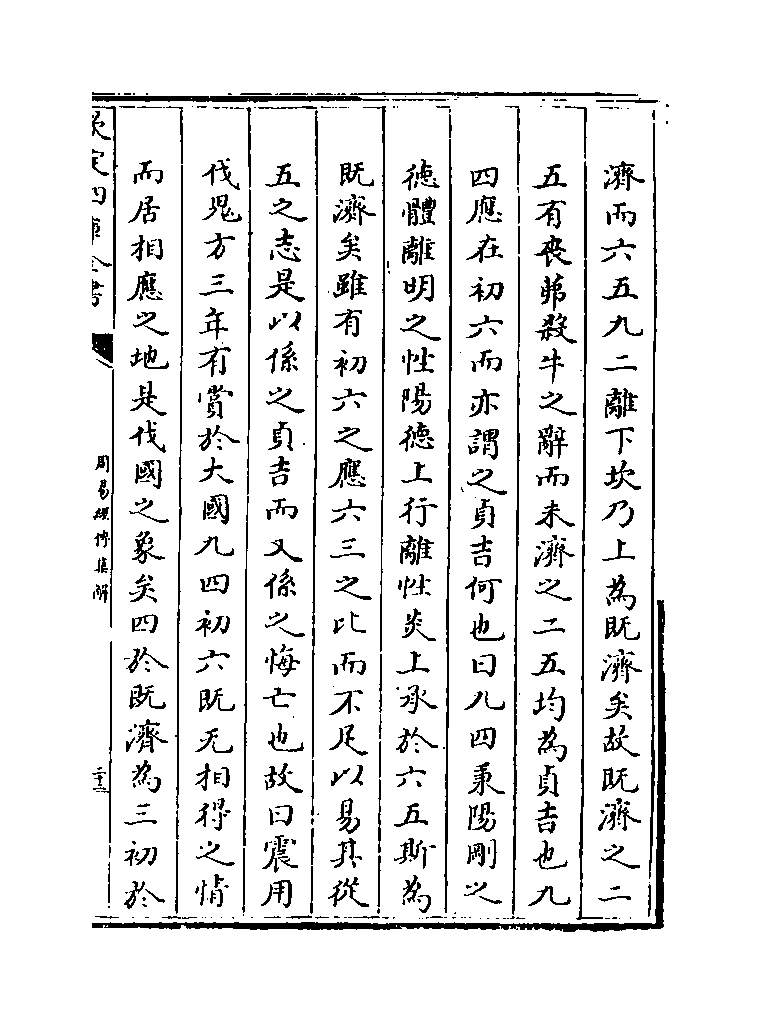 濟而六五九二離下坎乃上為既濟矣故既濟之二
五有喪茀殺牛之辭而未濟之二五均為貞吉也九
四應在初六而亦謂之貞吉何也曰九四秉陽剛之
德體離明之性陽德上行離性炎上承於六五斯為
既濟矣雖有初六之應六三之比而不足以易其從
五之志是以係之貞吉而又係之悔亡也故曰震用
伐鬼方三年有賞於大國九四初六既无相得之情
而居相應之地是伐國之象矣四於既濟為三初於
欽定四庫全書
周易經傳集解
二十三